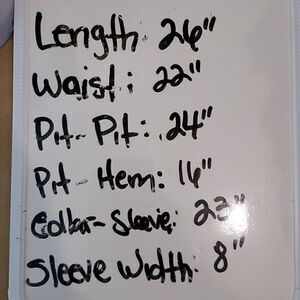 Length: 26"
Waist: 22"
Pit-Pit: 24"
Pit-Hem: 16"
Collar-Sleeve: 23"
Sleeve Width: 8"